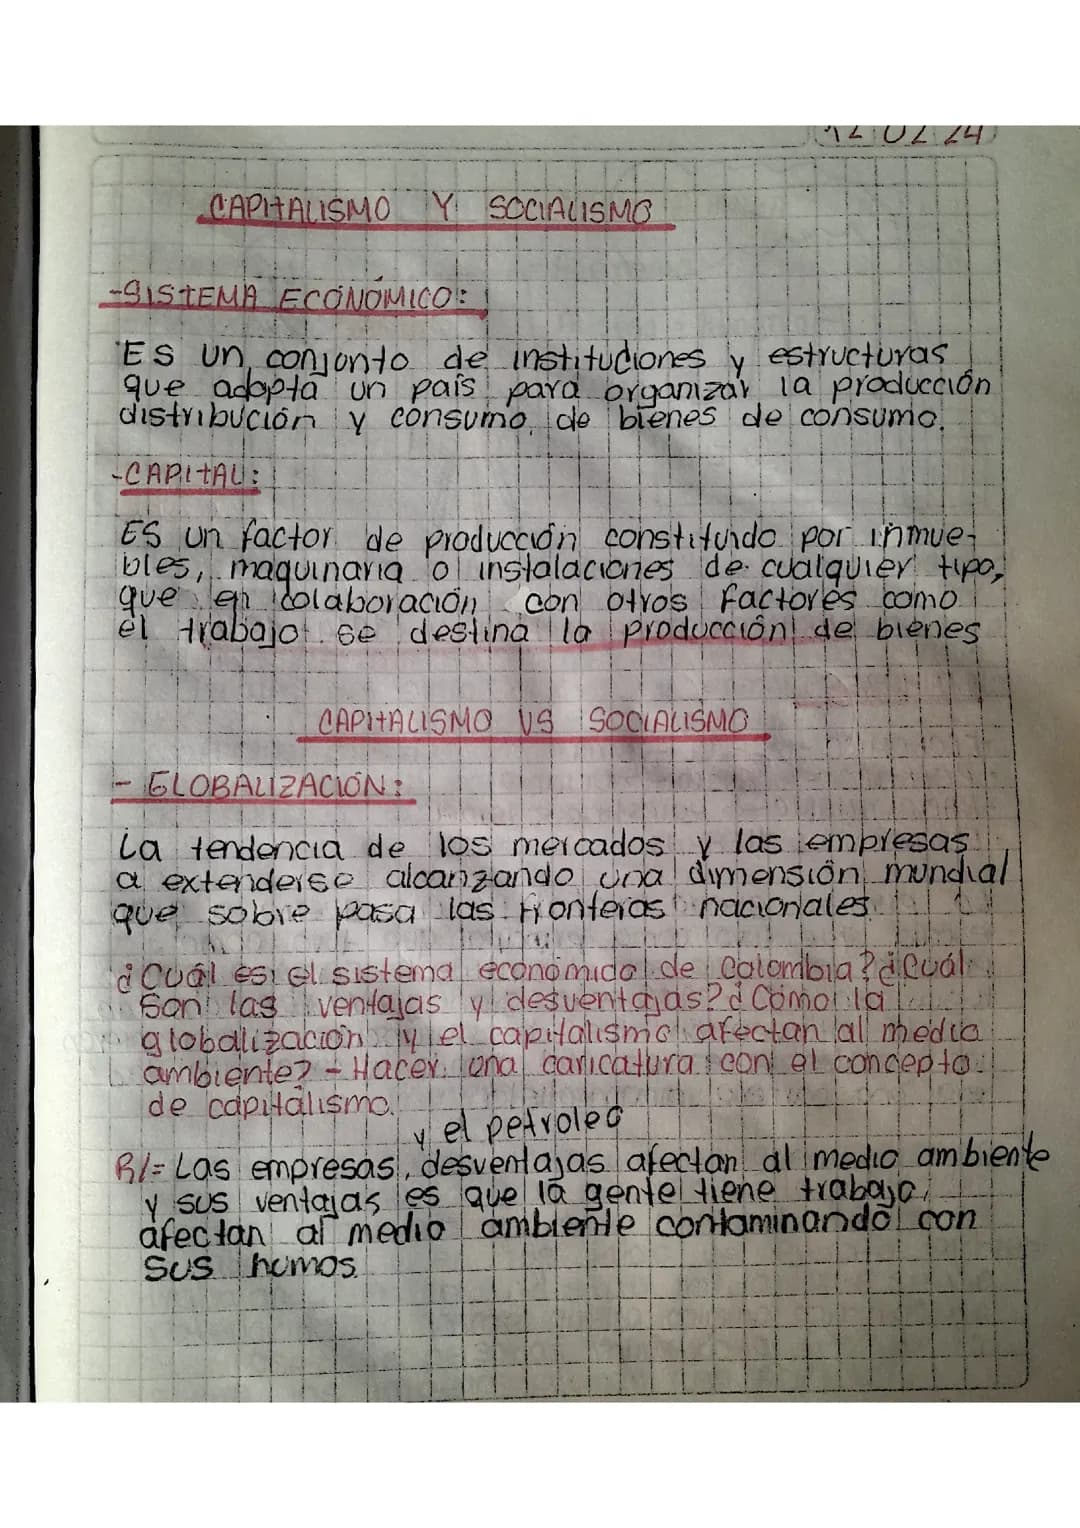 12 02 24
CAPITALISMO Y SOCIALISMO
-SISTEMA ECONÓMICO:
Es un conjonto de instituciones y estructuras
que adopta un país para organizar la producción
distribución y consumo de bienes de consumo.
-CAPITAL:
Es un factor de producción constituido por inmue-
bles, maquinaria o instalaciones de cualquier tipo,
que en colaboración con otros factores como
el trabajo se destina la producción de bienes
CAPITALISMO VS SOCIALISMO
- GLOBALIZACIÓN:
La tendencia de los mercados y las empresas
a extenderse alcanzando una dimensión mundial
que sobre pasa las fronteras nacionales.
¿Cuál es el sistema económido de Colombia? ¿Cuál
son las ventajas y desventajas? ¿Cómo la
globalización y el capitalismo afectan al medio
ambiente? - Hacer una caricatura con el concepto
de capitalismo.
y el petroleo
R/= Las empresas, desventajas afectan al medio ambiente
y sus ventajas es que la gente tiene trabajo,
afectan al medio ambiente contaminando con
sus humos.